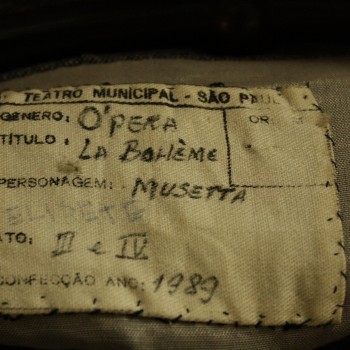 TEATRO MUNICIPAL - SÃO PAUL
GÊNERO: Ó'PERA
TÍTULO: LA BOHÈME
PERSONAGEM: MUSETTA
ATO: III e IV
CONFECÇÃO ANO: 1989